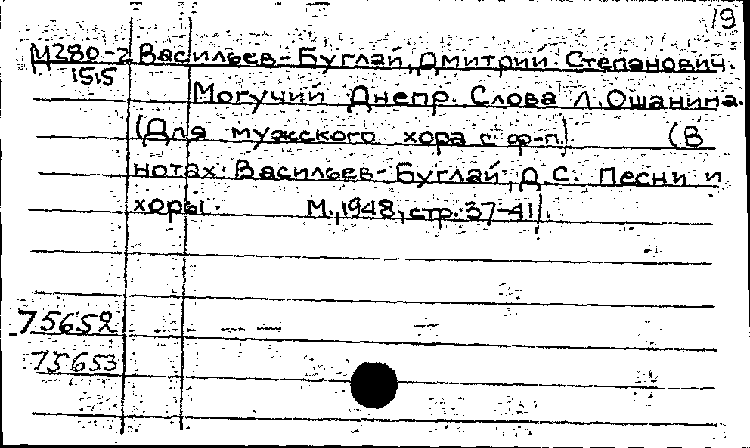 19
М280-2 Васильев-Буглай, Дмитрий Степанович.
1515 Могучий Днепр. Слова Л. Ошанина.
(Для мужского хора с ф-п) (В
нотах: Васильев-Буглай, Д.С. Песни и
хоры. М., 1948, стр. 37-41).
75652
75653